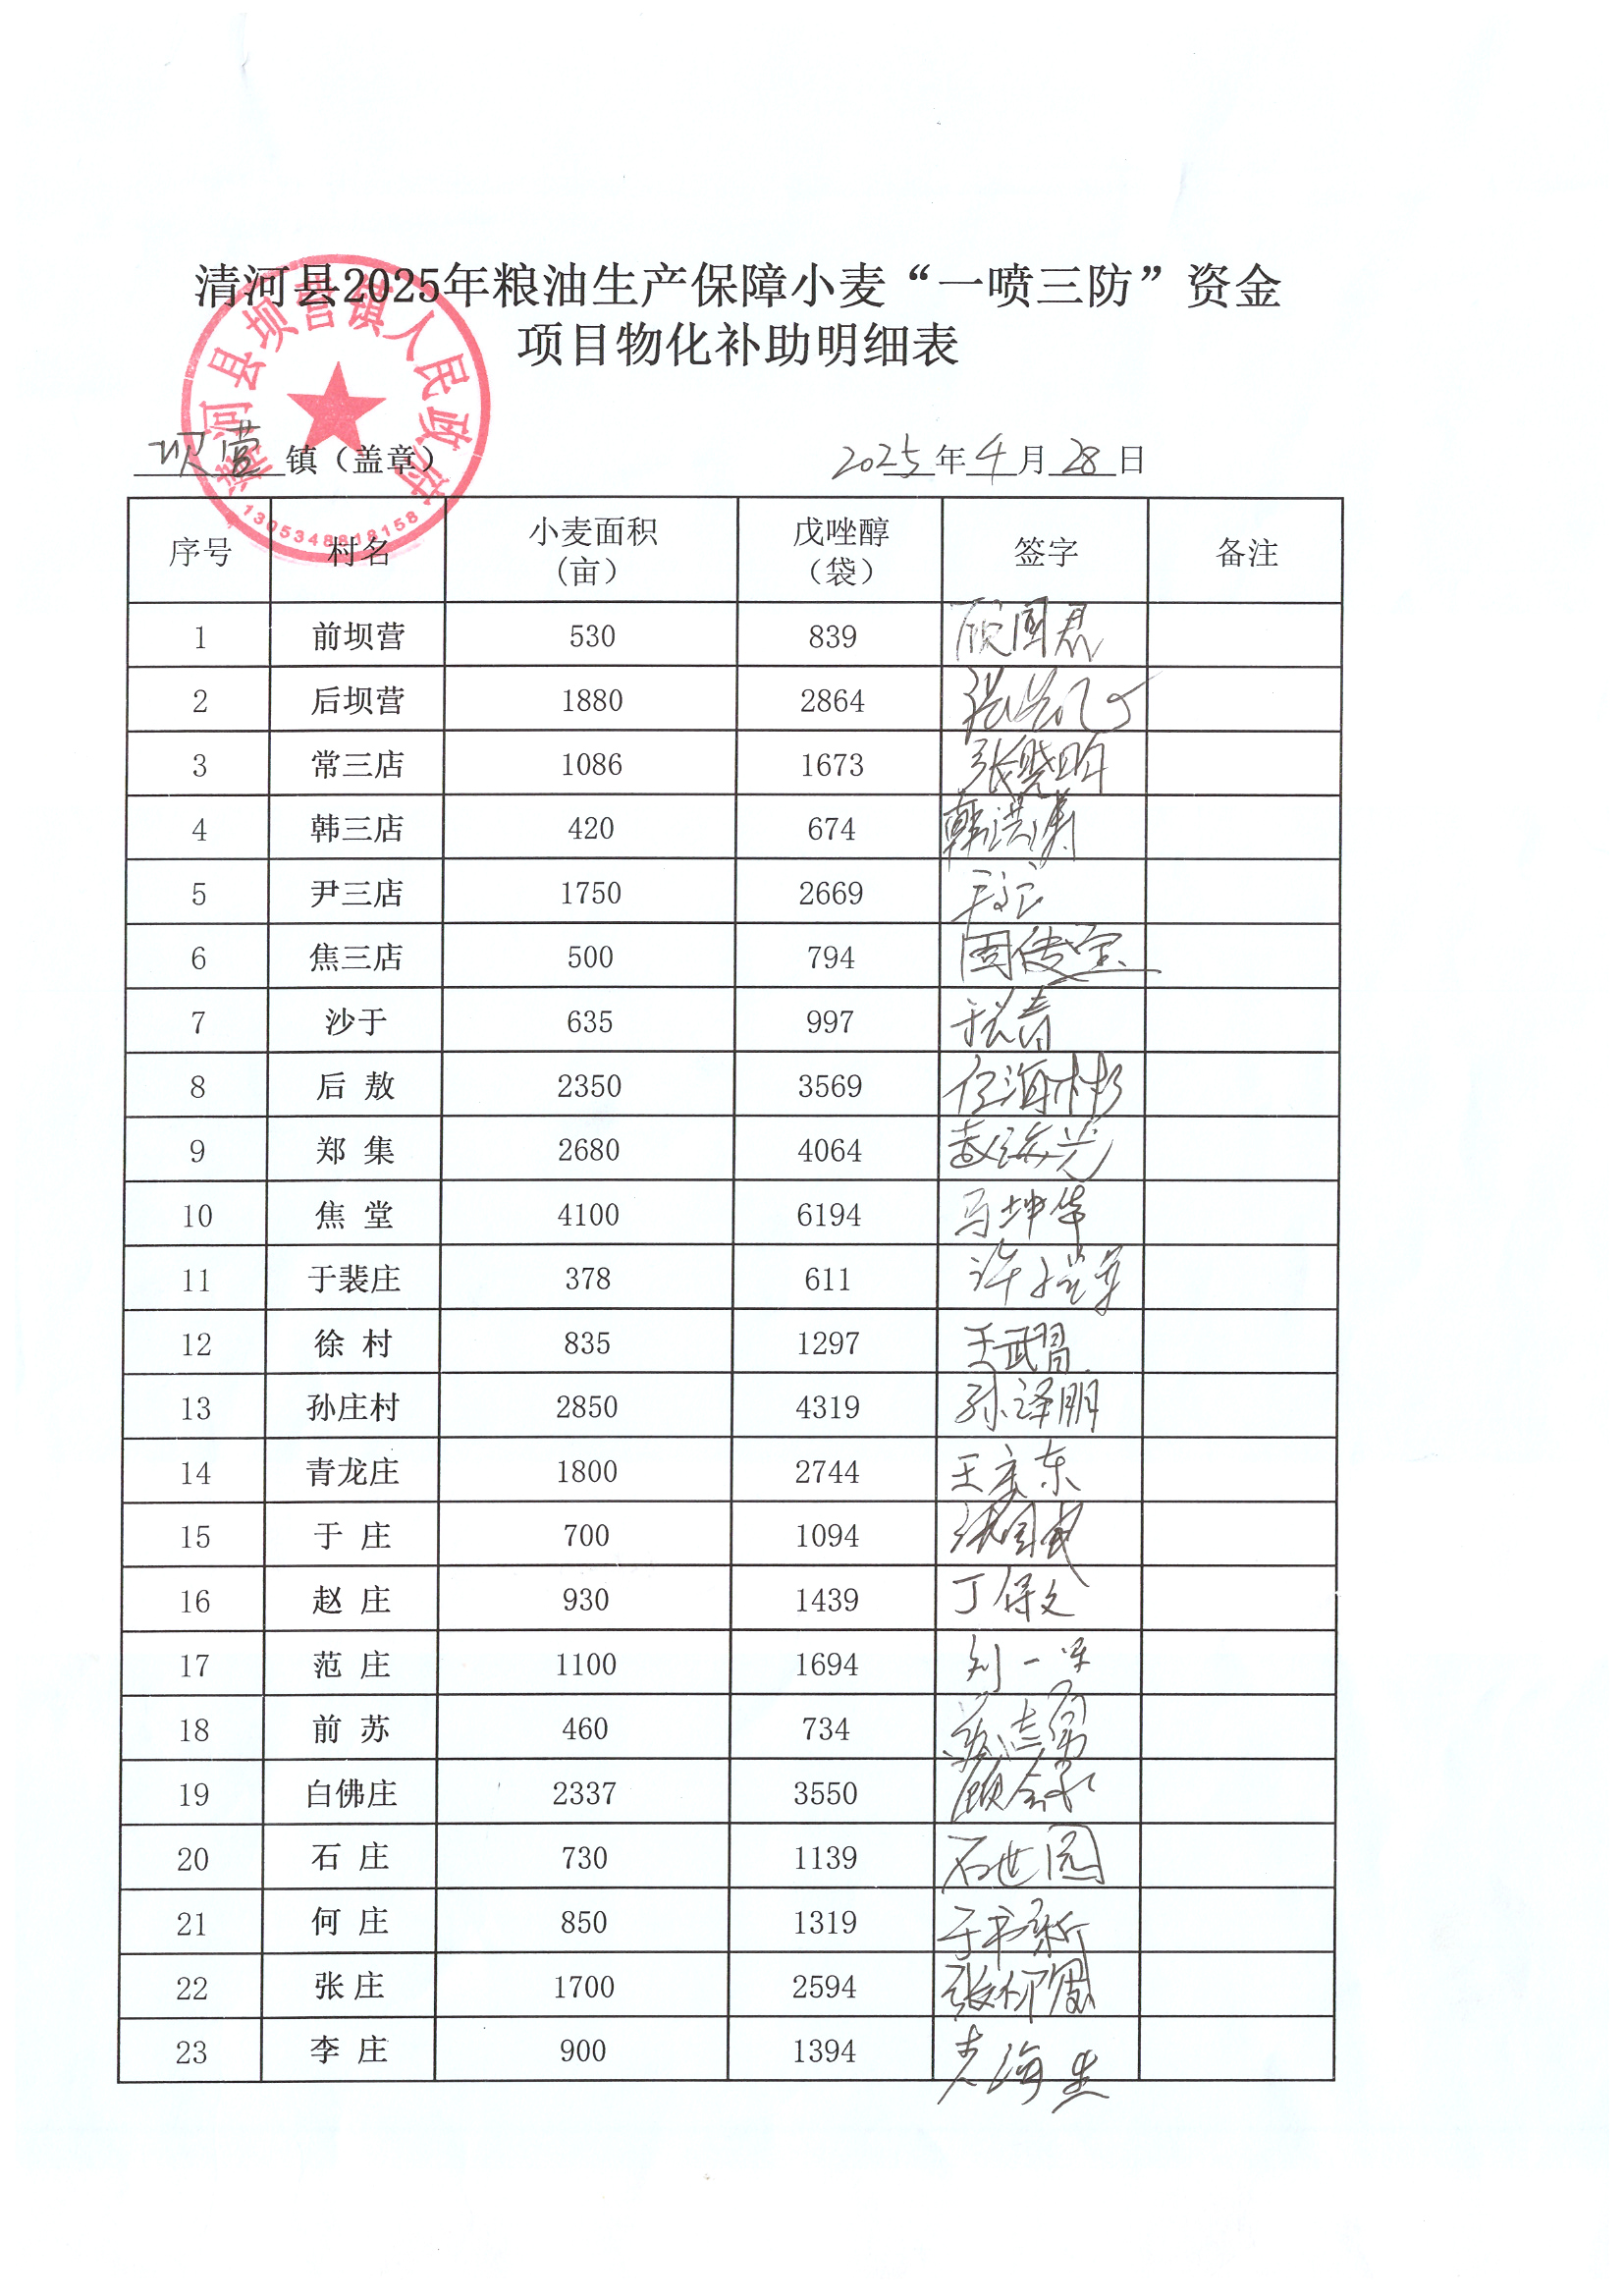 清河县2025年粮油生产保障小麦“一喷三防”资金
项目物化补助明细表
清河县坝营镇人民政府
1305348818158
坝营镇（盖章） 2025年4月28日
序号 村名 小麦面积（亩） 戊唑醇（袋） 签字 备注
1 前坝营 530 839 顾国磊
2 后坝营 1880 2864
3 常三店 1086 1673 张晓明
4 韩三店 420 674 韩洪涛
5 尹三店 1750 2669
6 焦三店 500 794 周传宝
7 沙于 635 997
8 后 敖 2350 3569 任海彬
9 郑 集 2680 4064
10 焦 堂 4100 6194 马坤华
11 于裴庄 378 611
12 徐 村 835 1297 王武习
13 孙庄村 2850 4319 孙泽朋
14 青龙庄 1800 2744
15 于 庄 700 1094
16 赵 庄 930 1439 丁保文
17 范 庄 1100 1694
18 前 苏 460 734
19 白佛庄 2337 3550
20 石 庄 730 1139 石世园
21 何 庄 850 1319 于书新
22 张 庄 1700 2594
23 李 庄 900 1394